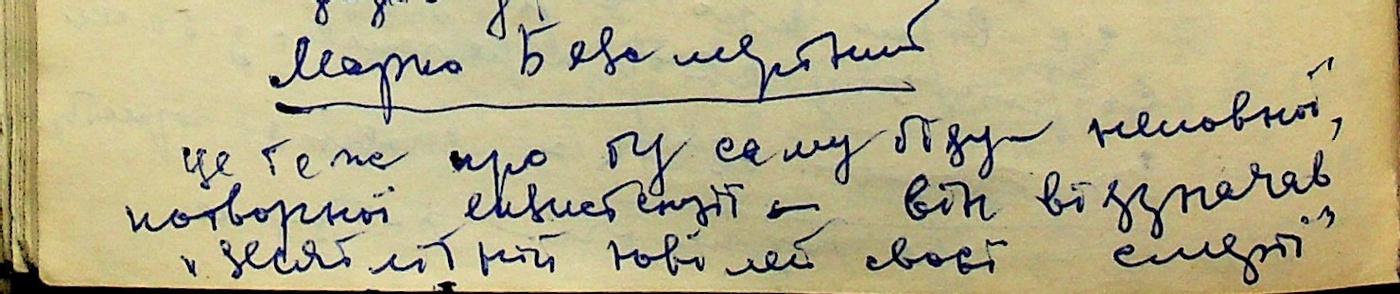 Марко Безсмертний
це теж про ту саму біду – неповної,
потворної екзистенції – він відзначав
"десятилітній ювілей своєї смерті"